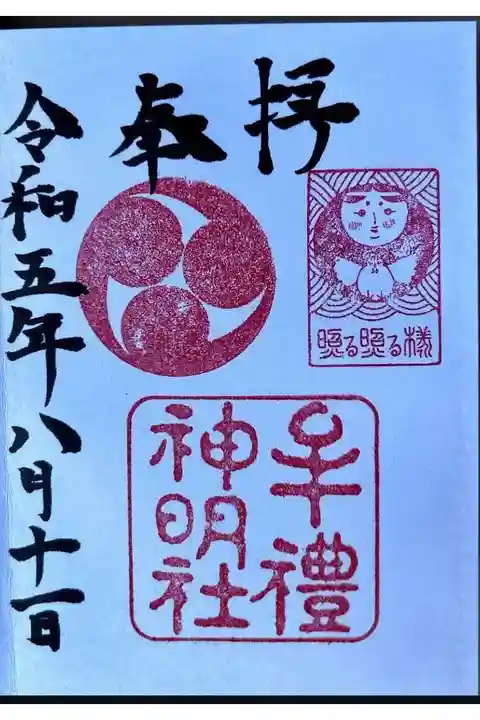 奉拝
令和五年八月十一日
る る様
牟禮
神明社